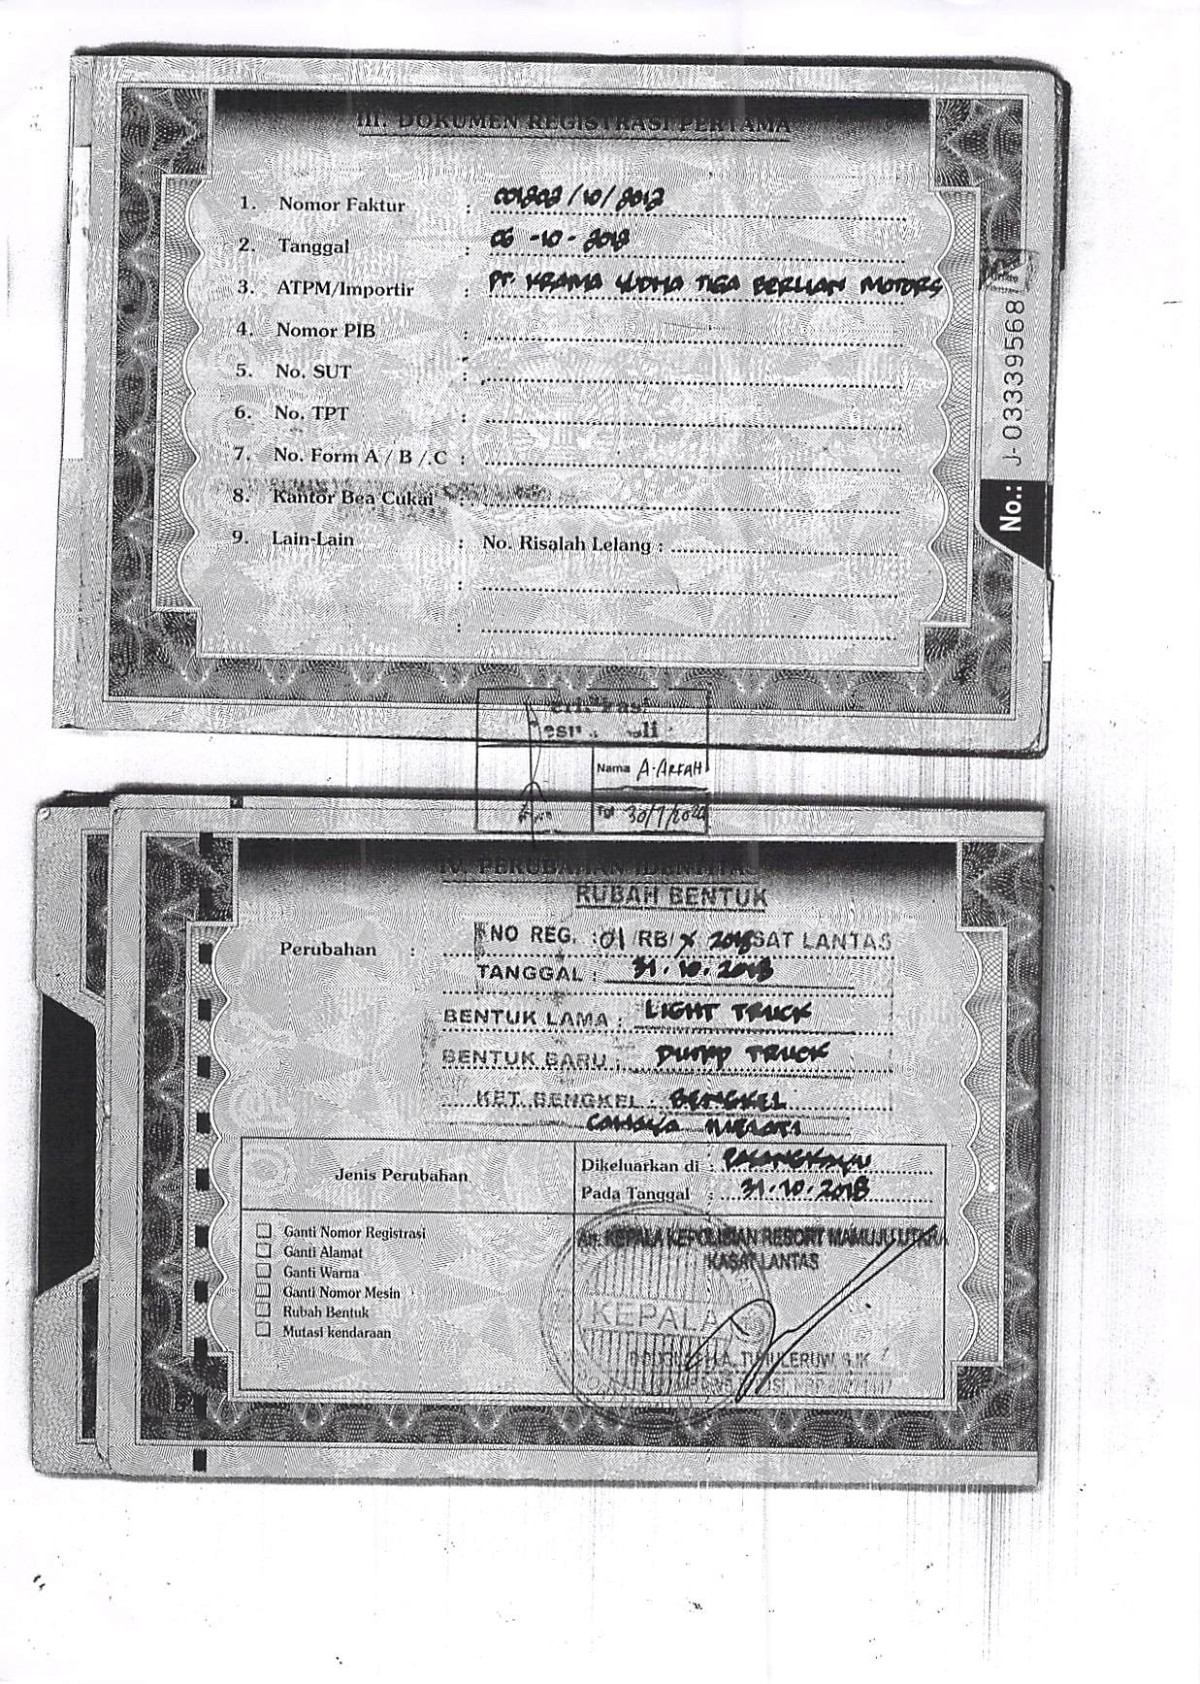 III. DOKUMEN REGISTRASI PERTAMA
1. Nomor Faktur :
2. Tanggal : 06 - 10 - 2018
3. ATPM/Importir : PT. KRAMA YUDHA TIGA BERLIAN MOTORS
4. Nomor PIB :
5. No. SUT :
6. No. TPT :
7. No. Form A / B / C :
8. Kantor Bea Cukai :
9. Lain-Lain : No. Risalah Lelang :
:
:
No.: J-03339568
Nama A. ARFAH
Tgl 30/7/
IV. PERUBAHAN IDENTITAS
RUBAH BENTUK
Perubahan : NO REG. : 01 /RB/ X 2018 SAT LANTAS
TANGGAL : 31. 10. 2018
BENTUK LAMA : LIGHT TRUCK
BENTUK BARU : DUMP TRUCK
KET. BENGKEL : BENGKEL
Jenis Perubahan
Dikeluarkan di :
Pada Tanggal : 31. 10. 2018
Ganti Nomor Registrasi
Ganti Alamat
Ganti Warna
Ganti Nomor Mesin
Rubah Bentuk
Mutasi kendaraan
An. KEPALA KEPOLISIAN RESORT MAMUJU UTARA
KASAT LANTAS
KEPALA